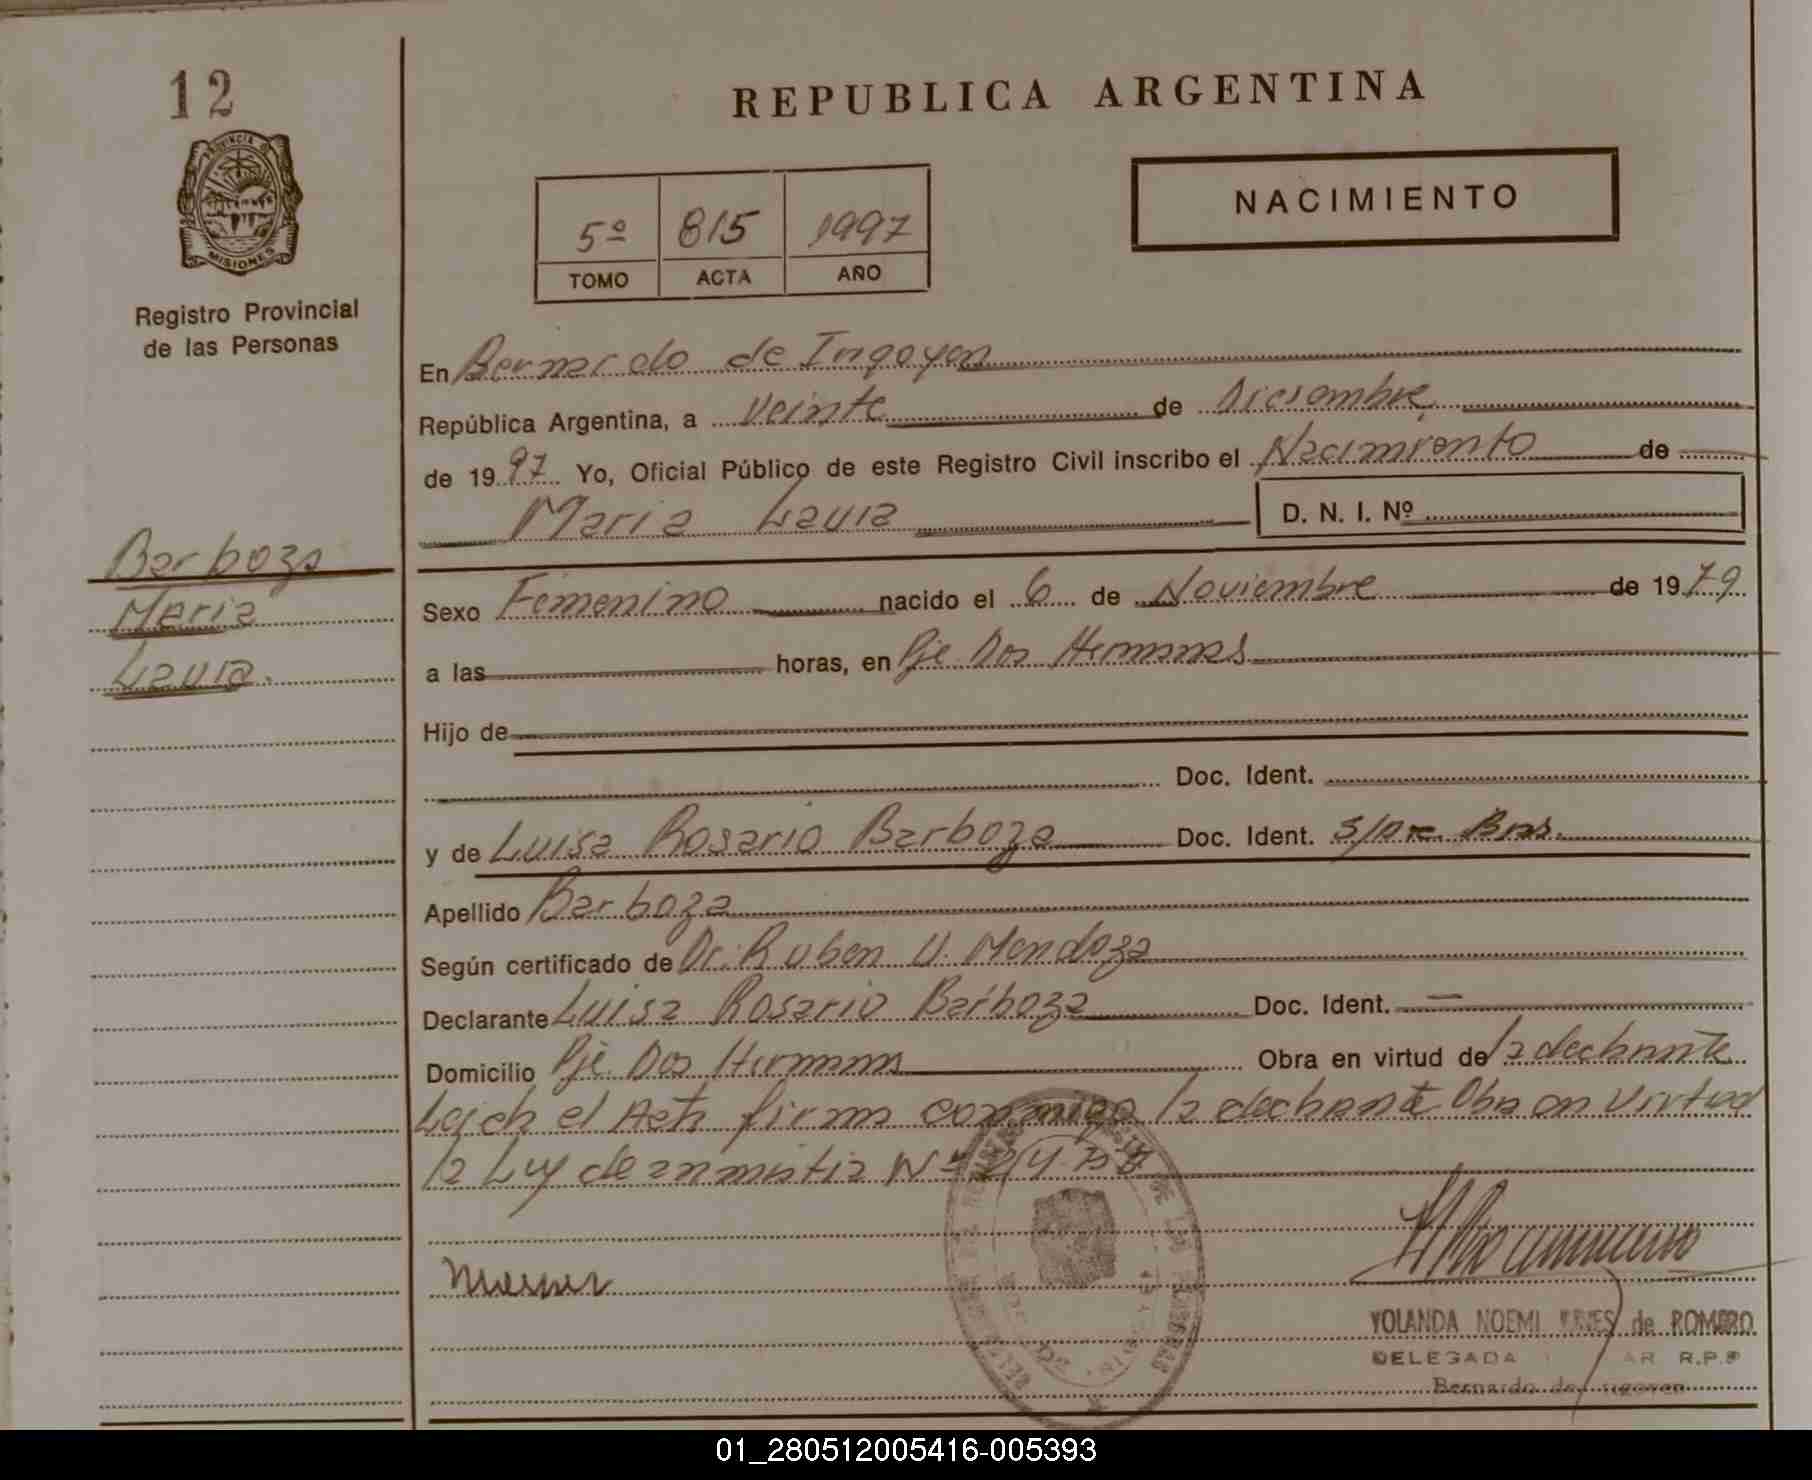 12
REPUBLICA ARGENTINA
PROVINCIA DE
MISIONES
Registro Provincial
de las Personas
5º 815 1997
TOMO ACTA AÑO
NACIMIENTO
En Bernardo de Irigoyen
República Argentina, a Veinte de Diciembre
de 1997 Yo, Oficial Público de este Registro Civil inscribo el Nacimiento de
Maria Laura
D. N. I. Nº
Barboza
Maria
Laura
Sexo Femenino nacido el 6 de Noviembre de 1979
a las horas, en Pje Dos Hermanas
Hijo de
Doc. Ident.
y de Luisa Rosario Barboza Doc. Ident. Bras.
Apellido Barboza
Según certificado de Dr. Ruben U. Mendoza
Declarante Luisa Rosario Barboza Doc. Ident. —
Domicilio Pje. Dos Hermanas Obra en virtud de la declarante
Leida el Acta firma conmigo la declarante Obra en Virtud
la Ley de amnistia Nº
YOLANDA NOEMI de ROMERO
DELEGADA R.P.P
Bernardo de Irigoyen
01_280512005416-005393